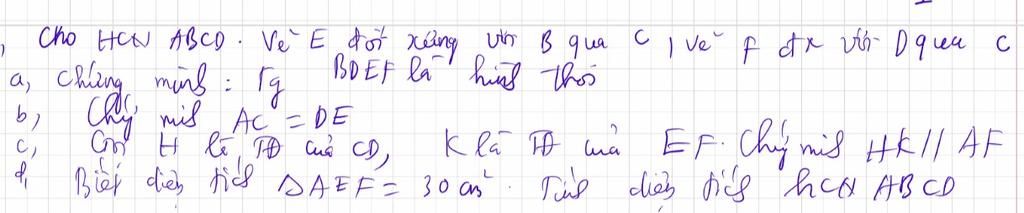 Cho HCN ABCD. Vẽ E đối xứng với B qua C, vẽ F đx với D qua C
a, Chứng minh: Tg BDEF là hình thoi
b, Chứng minh AC = DE
c, Gọi H là TĐ của CD, K là TĐ của EF. Chứng minh HK // AF
d, Biết diện tích ΔAEF = 30 cm². Tính diện tích hCN ABCD